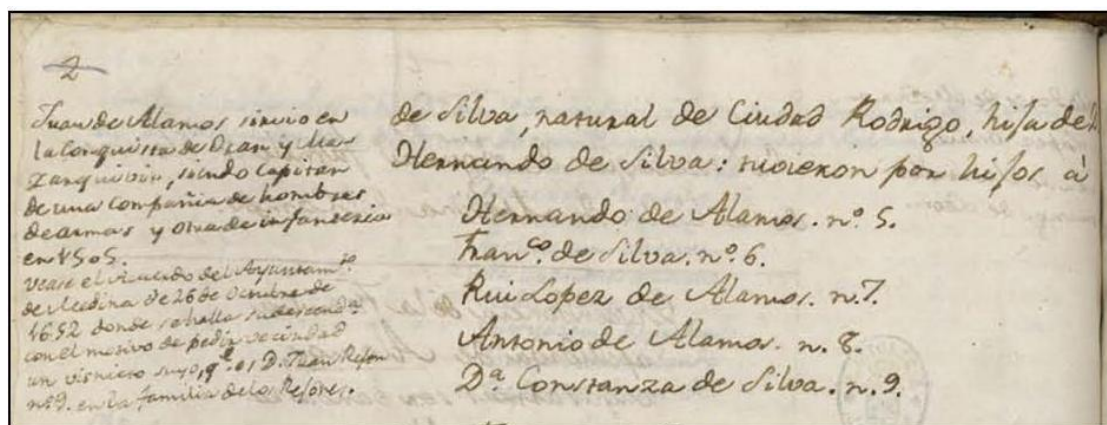 2
Juan de Alamos sirvio en
la Conquista de Oran y Ma
zarquivir, siendo Capitan
de una Compañia de hombres
de armas y otra de infanteria
en 1505.
vease el Acuerdo del Ayuntam.to
de Medina de 26 de Octubre de
1652 donde se halla su descend.a
con el motivo de pedir vecindad
un visnieto suyo, q.e es D. Juan Rejon
nº 9. en la familia de los Rejones.
de Silva, natural de Ciudad Rodrigo, hija de
Hernando de Silva: tuvieron por hijos á
Hernando de Alamos. nº 5.
Fran.co de Silva. nº 6.
Rui Lopez de Alamos. n. 7.
Antonio de Alamos. n. 8.
D.a Constanza de Silva. n. 9.